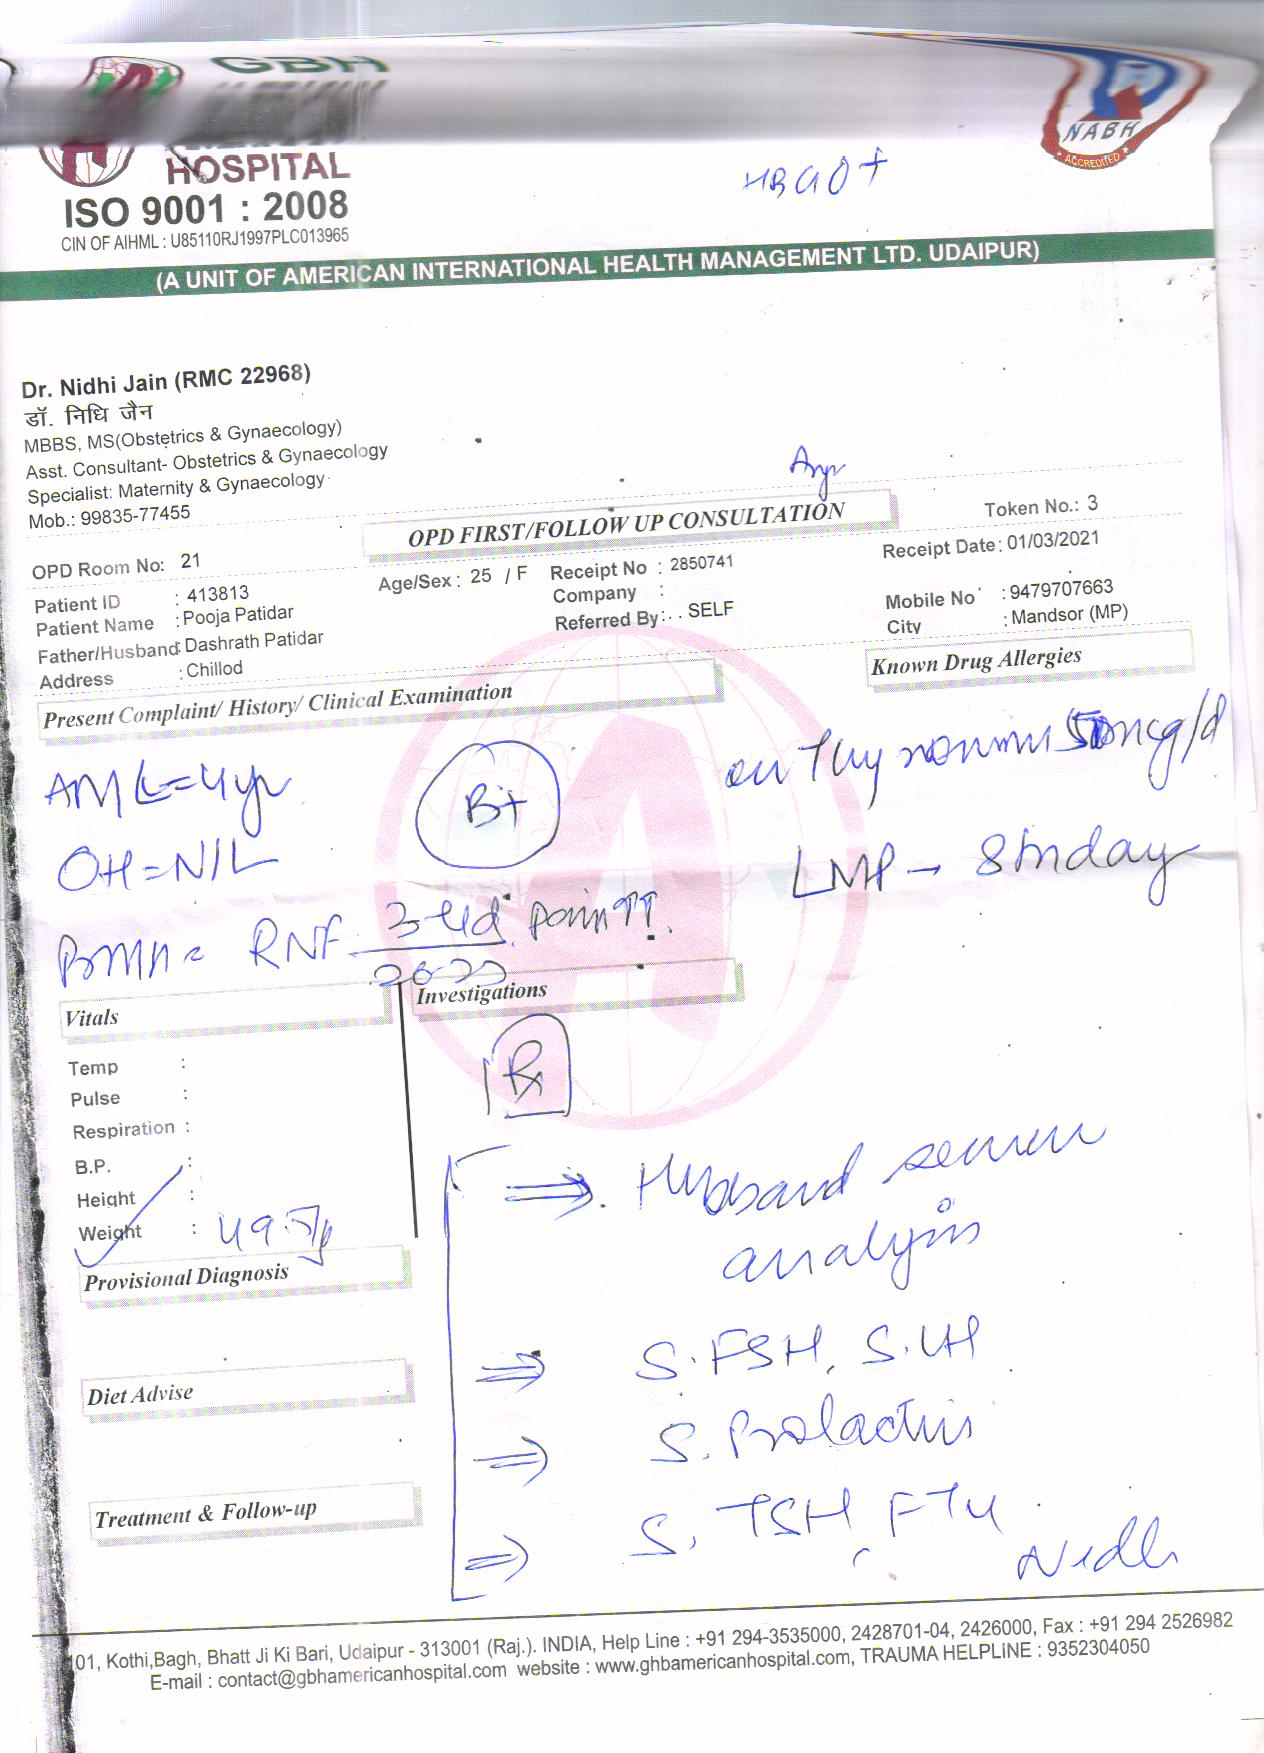 GBH
HOSPITAL
ISO 9001 : 2008
CIN OF AIHML : U85110RJ1997PLC013965
NABH
ACCREDITED
(A UNIT OF AMERICAN INTERNATIONAL HEALTH MANAGEMENT LTD. UDAIPUR)
Dr. Nidhi Jain (RMC 22968)
डॉ. निधि जैन
MBBS, MS(Obstetrics & Gynaecology)
Asst. Consultant- Obstetrics & Gynaecology
Specialist: Maternity & Gynaecology
Mob.: 99835-77455
OPD FIRST/FOLLOW UP CONSULTATION
Token No.: 3
OPD Room No: 21
Receipt Date: 01/03/2021
Patient ID : 413813
Age/Sex : 25 / F
Receipt No : 2850741
Mobile No : 9479707663
Patient Name : Pooja Patidar
Company :
City : Mandsor (MP)
Father/Husband: Dashrath Patidar
Referred By: . . SELF
Address : Chillod
Known Drug Allergies
Present Complaint/ History/ Clinical Examination
B+
50mcg/d
OH = NIL
LMP → 8th day
RNF 3-4d pain ↑↑.
Vitals
Investigations
Temp :
Pulse :
Respiration :
B.P. :
Height :
Weight : 49.5
Rx
⇒ Husband semen
analysis
⇒ S. FSH, S. LH
⇒ S. Prolactin
⇒ S. TSH, FT4
Nidhi
Provisional Diagnosis
Diet Advise
Treatment & Follow-up
101, Kothi,Bagh, Bhatt Ji Ki Bari, Udaipur - 313001 (Raj.). INDIA, Help Line : +91 294-3535000, 2428701-04, 2426000, Fax : +91 294 2526982
E-mail : contact@gbhamericanhospital.com website : www.ghbamericanhospital.com, TRAUMA HELPLINE : 9352304050